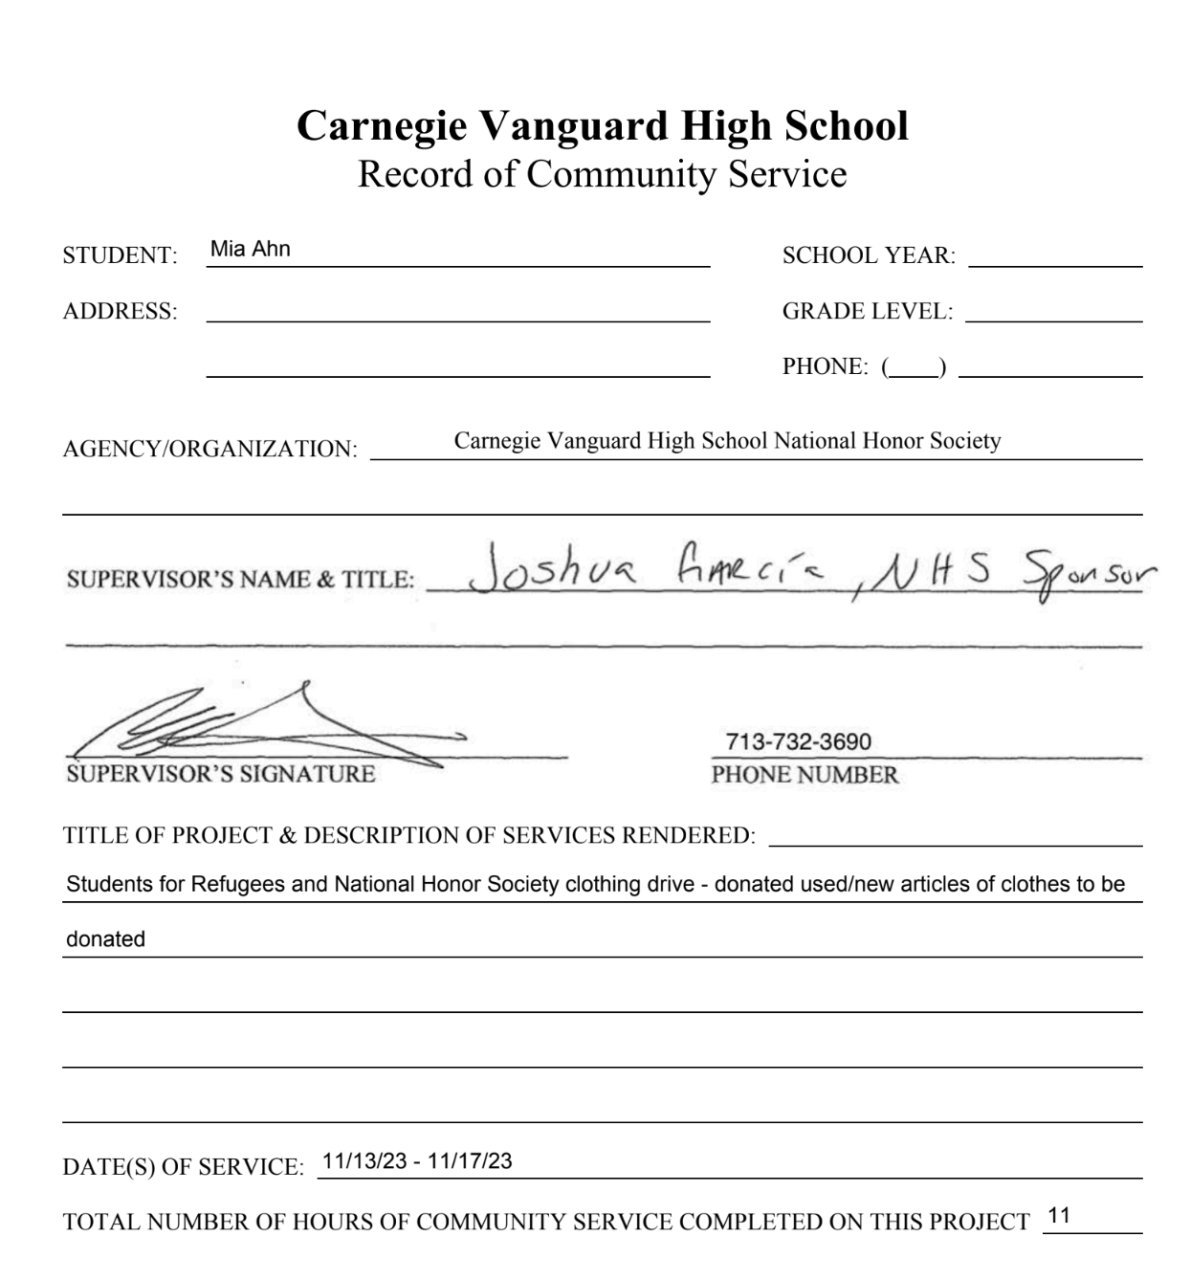 Carnegie Vanguard High School
Record of Community Service
STUDENT: Mia Ahn SCHOOL YEAR:
ADDRESS: GRADE LEVEL:
PHONE: (___)
AGENCY/ORGANIZATION: Carnegie Vanguard High School National Honor Society
SUPERVISOR'S NAME & TITLE: Joshua García, NHS Sponsor
713-732-3690
SUPERVISOR'S SIGNATURE PHONE NUMBER
TITLE OF PROJECT & DESCRIPTION OF SERVICES RENDERED:
Students for Refugees and National Honor Society clothing drive - donated used/new articles of clothes to be
donated
DATE(S) OF SERVICE: 11/13/23 - 11/17/23
TOTAL NUMBER OF HOURS OF COMMUNITY SERVICE COMPLETED ON THIS PROJECT 11